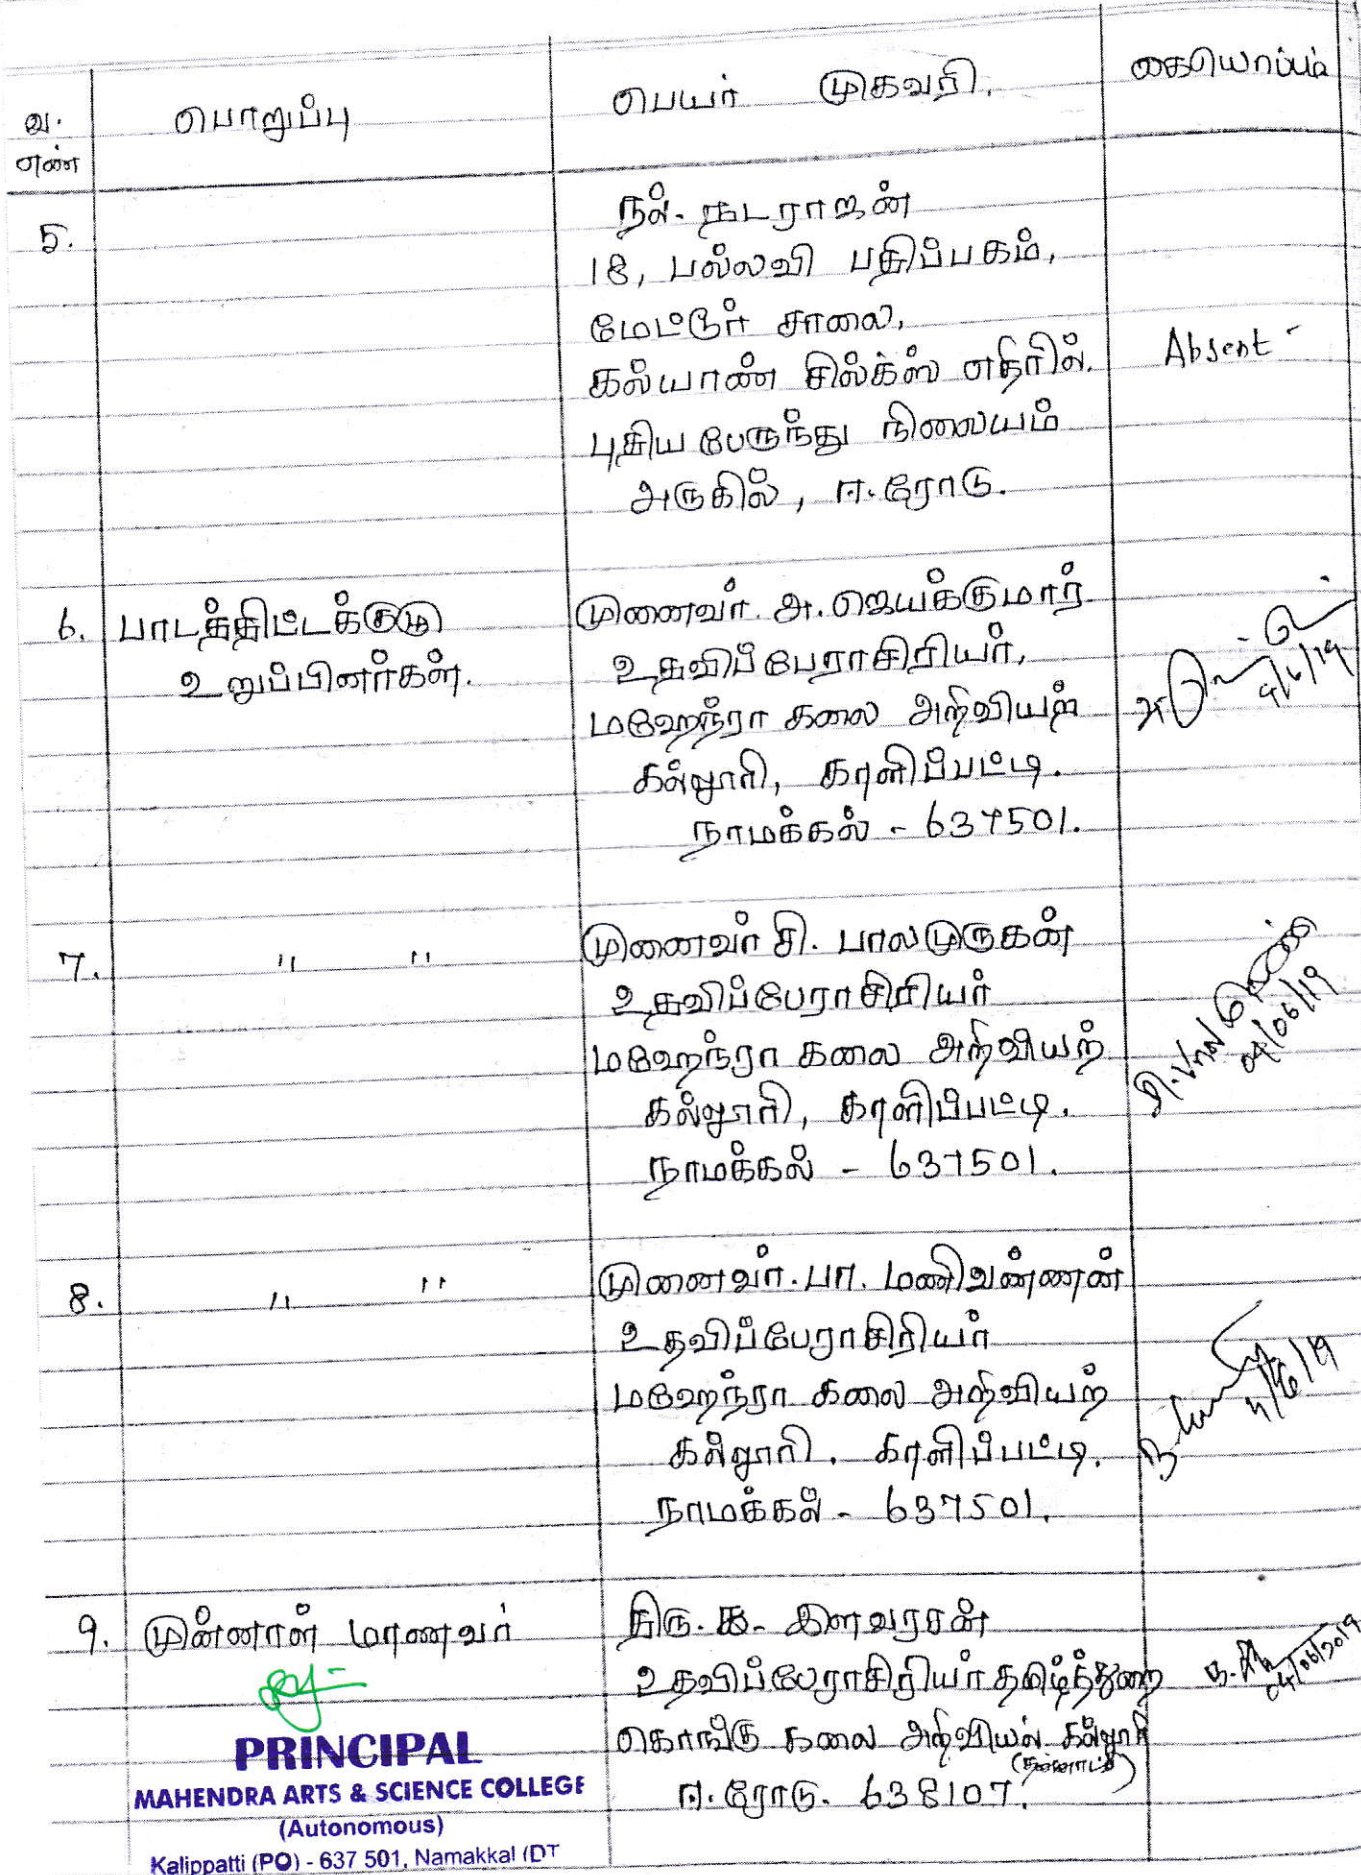 வ.
எண்
பொறுப்பு
பெயர் முகவரி.
கையொப்பம்
5.
நல். நடராஜன்
18, பல்லவி பதிப்பகம்,
மேட்டூர் சாலை,
கல்யாண் சில்க்ஸ் எதிரில்.
புதிய பேருந்து நிலையம்
அருகில், ஈ.ரோடு.
Absent -
6. பாடத்திட்டக்குழு
உறுப்பினர்கள்.
முனைவர். அ. ஜெயக்குமார்
உதவிப் பேராசிரியர்,
மஹேந்ரா கலை அறிவியற்
கல்லூரி, காளிப்பட்டி.
நாமக்கல் - 637501.
4/6/19
7. " "
முனைவர் சி. பாலமுருகன்
உதவிப்பேராசிரியர்
மஹேந்ரா கலை அறிவியற்
கல்லூரி, காளிப்பட்டி.
நாமக்கல் - 637501.
சி. பாலமுருகன்
04/06/19
8. " "
முனைவர். பா. மணிவண்ணன்
உதவிப்பேராசிரியர்
மஹேந்ரா கலை அறிவியற்
கல்லூரி. காளிப்பட்டி.
நாமக்கல் - 637501.
4/6/19
9. முன்னாள் மாணவர்
திரு. க. இளவரசன்
உதவிப்பேராசிரியர் தமிழ்த்துறை
கொங்கு கலை அறிவியல் கல்லூரி
ஈ.ரோடு. 638107.
04/06/2019
PRINCIPAL
MAHENDRA ARTS & SCIENCE COLLEGE
(Autonomous)
Kalippatti (PO) - 637 501, Namakkal (DT